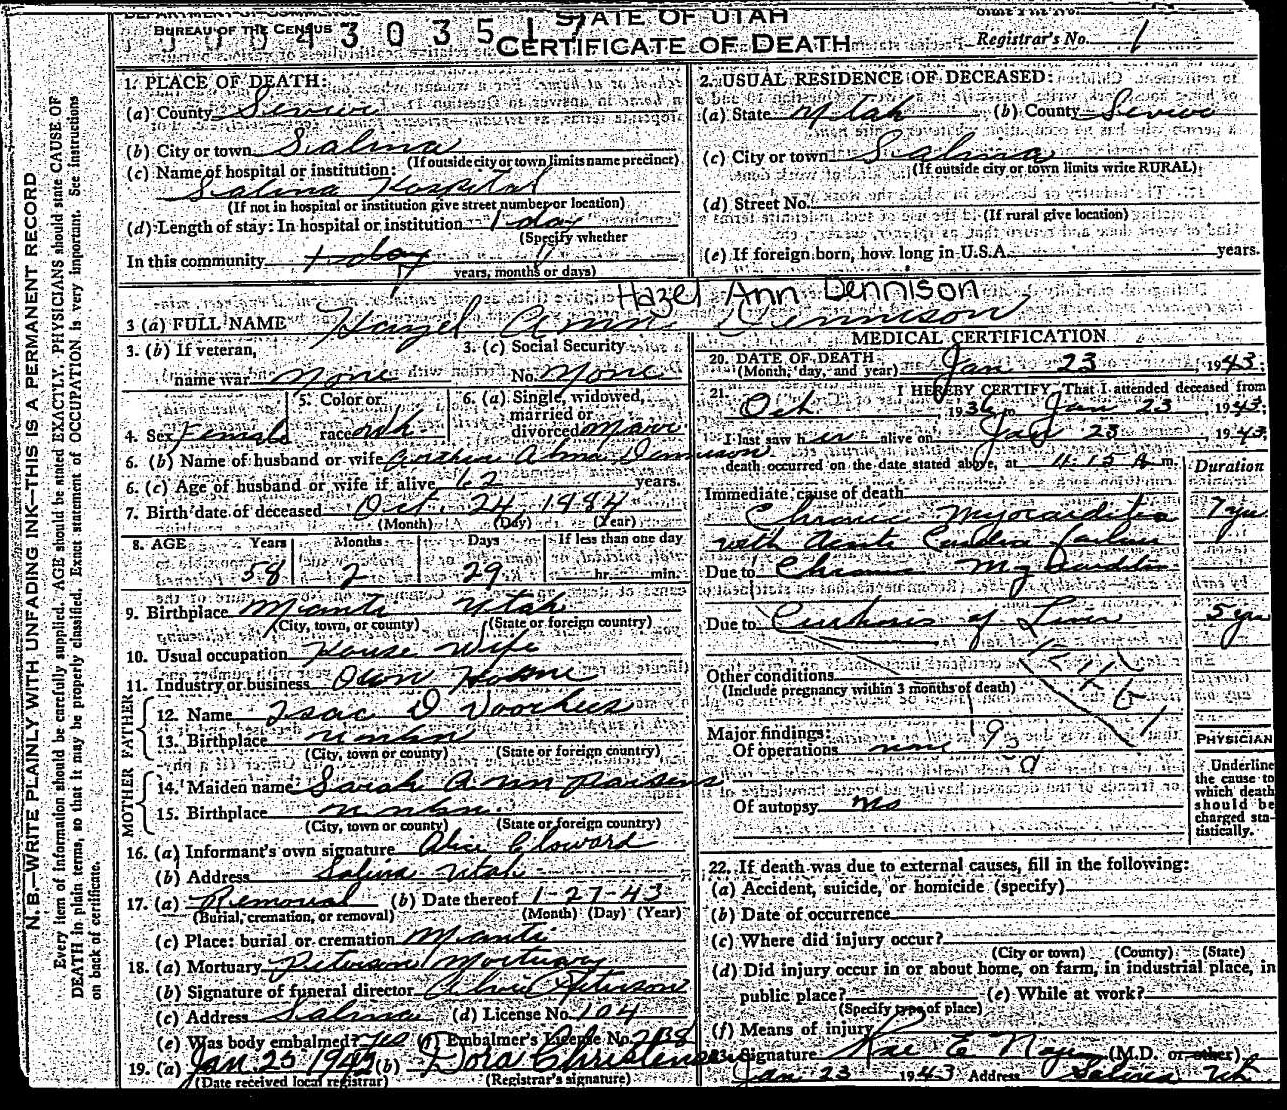 BUREAU OF THE CENSUS
STATE OF UTAH
CERTIFICATE OF DEATH
Registrar's No. 1
1. PLACE OF DEATH:
(a) County Sevier
(b) City or town Salina
(If outside city or town limits name precinct)
(c) Name of hospital or institution:
Salina Hospital
(If not in hospital or institution give street number or location)
(d) Length of stay: In hospital or institution 1 day
(Specify whether
In this community 1 day
years, months or days)
2. USUAL RESIDENCE OF DECEASED:
(a) State Utah (b) County Sevier
(c) City or town Salina
(If outside city or town limits write RURAL)
(d) Street No.
(If rural give location)
(e) If foreign born, how long in U.S.A. years.
Hazel Ann Dennison
3 (a) FULL NAME Hazel Ann Dennison
3. (b) If veteran,
name war None
3. (c) Social Security
No. None
4. Sex Female
5. Color or
race wh
6. (a) Single, widowed,
married or
divorced Marr
6. (b) Name of husband or wife Alma Dennison
6. (c) Age of husband or wife if alive 62 years.
7. Birth date of deceased Oct. 24, 1884
(Month) (Day) (Year)
8. AGE Years Months Days If less than one day
58 2 29 hr. min.
9. Birthplace Manti Utah
(City, town, or county) (State or foreign country)
10. Usual occupation House Wife
11. Industry or business Own Home
FATHER
12. Name Isac D Voorhees
13. Birthplace
(City, town or county) (State or foreign country)
MOTHER
14. Maiden name Sarah Ann Parsons
15. Birthplace
(City, town or county) (State or foreign country)
16. (a) Informant's own signature Alice Cloward
(b) Address Salina Utah
17. (a) Removal (b) Date thereof 1-27-43
(Burial, cremation, or removal) (Month) (Day) (Year)
(c) Place: burial or cremation Manti
18. (a) Mortuary Peterson Mortuary
(b) Signature of funeral director Peterson
(c) Address Salina (d) License No. 104
(e) Was body embalmed? Yes (f) Embalmer's License No.
19. (a) Jan. 25 1943 (b) Dora Christensen
(Date received local registrar) (Registrar's signature)
MEDICAL CERTIFICATION
20. DATE OF DEATH
(Month, day, and year) Jan 23, 1943.
21. I HEREBY CERTIFY, That I attended deceased from
Oct, 1936 to Jan 23, 1943.
I last saw her alive on Jan 23 1943.
death occurred on the date stated above, at 11:15 A m.
Duration
Immediate cause of death
Chronic Myocarditis 7 yrs
with Acute
Due to Chronic Myocarditis
Due to Cirrhosis of Liver 5 yrs
Other conditions
(Include pregnancy within 3 months of death)
Major findings:
Of operations none
Of autopsy no
PHYSICIAN
Underline
the cause to
which death
should be
charged sta-
tistically.
22. If death was due to external causes, fill in the following:
(a) Accident, suicide, or homicide (specify)
(b) Date of occurrence
(c) Where did injury occur?
(City or town) (County) (State)
(d) Did injury occur in or about home, on farm, in industrial place, in
public place? (e) While at work?
(Specify type of place)
(f) Means of injury
23. Signature Rae E Noyes (M.D. or other)
Jan 23 1943 Address Salina Ut
N. B.—WRITE PLAINLY WITH UNFADING INK—THIS IS A PERMANENT RECORD
Every item of information should be carefully supplied. AGE should be stated EXACTLY. PHYSICIANS should state CAUSE OF
DEATH in plain terms, so that it may be properly classified. Exact statement of OCCUPATION is very important. See instructions
on back of certificate.